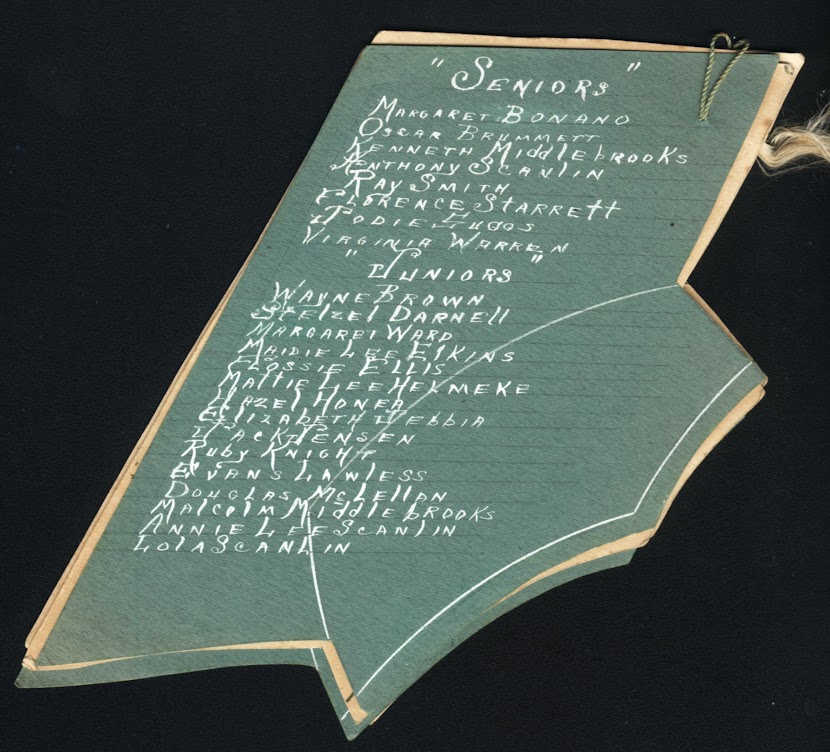 "Seniors"
Margaret Bonano
Oscar Brummett
Kenneth Middlebrooks
Anthony Scanlin
Ray Smith
Florence Starrett
Jodie Suggs
Virginia Warren
"Juniors"
Wayne Brown
Stelzel Darnell
Margaret Ward
Maidie Lee Elkins
Flossie Ellis
Mattie Lee Helmeke
Hazel Honea
Elizabeth Jebbia
Jack Jensen
Ruby Knight
Evans Lawless
Douglas McLellan
Malcolm Middlebrooks
Annie Lee Scanlin
Lola Scanlin